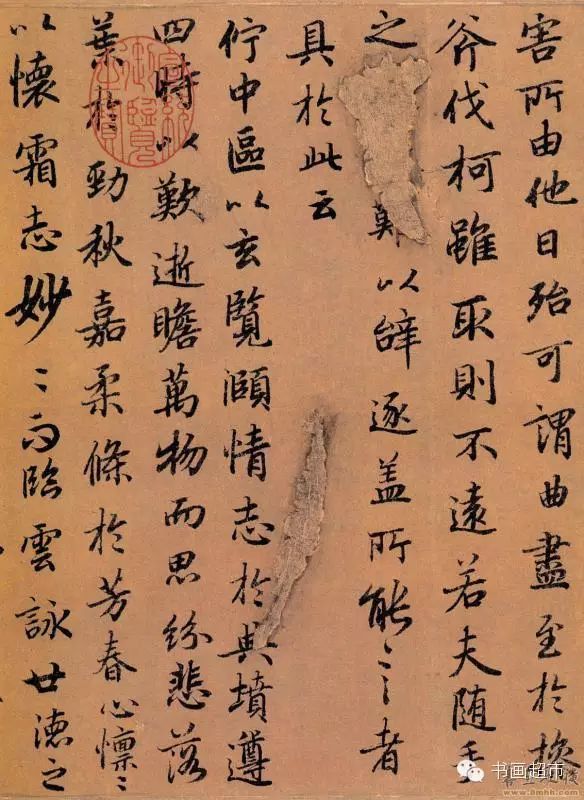 害所由他日殆可謂曲盡至於操
斧伐柯雖取則不遠若夫随手
之難以辝逐盖所能言者
具於此云
佇中區以玄覽頤情志於典墳遵
四時以歎逝瞻萬物而思紛悲落
葉於勁秋嘉柔條於芳春心懍〻
以懷霜志妙〻而臨雲詠世徳之
书画超市